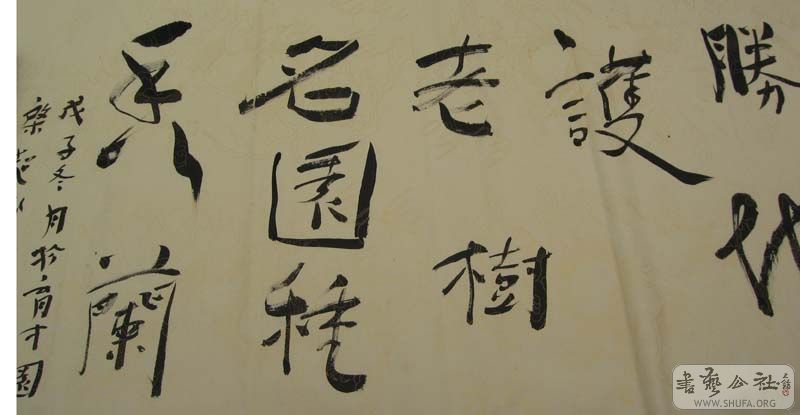 勝代
護
老樹
名園種
香蘭
戊子冬月於育才園
書藝公社
WWW.SHUFA.ORG